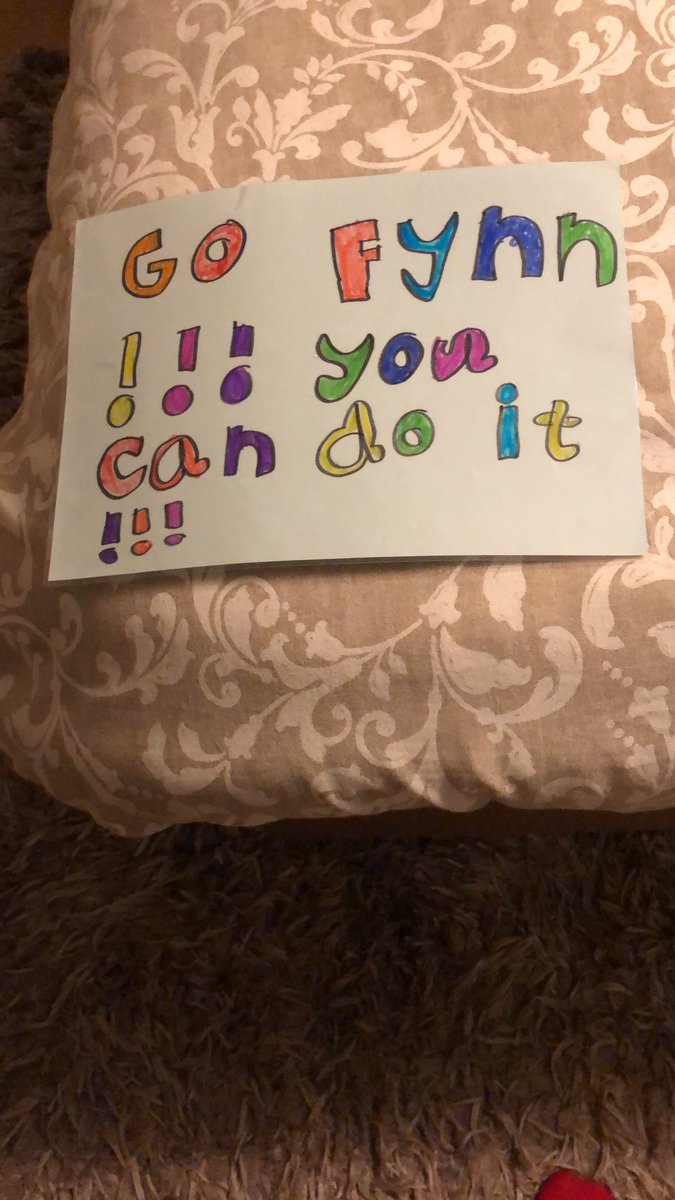 Go Fynn
!!! you
can do it
!!!